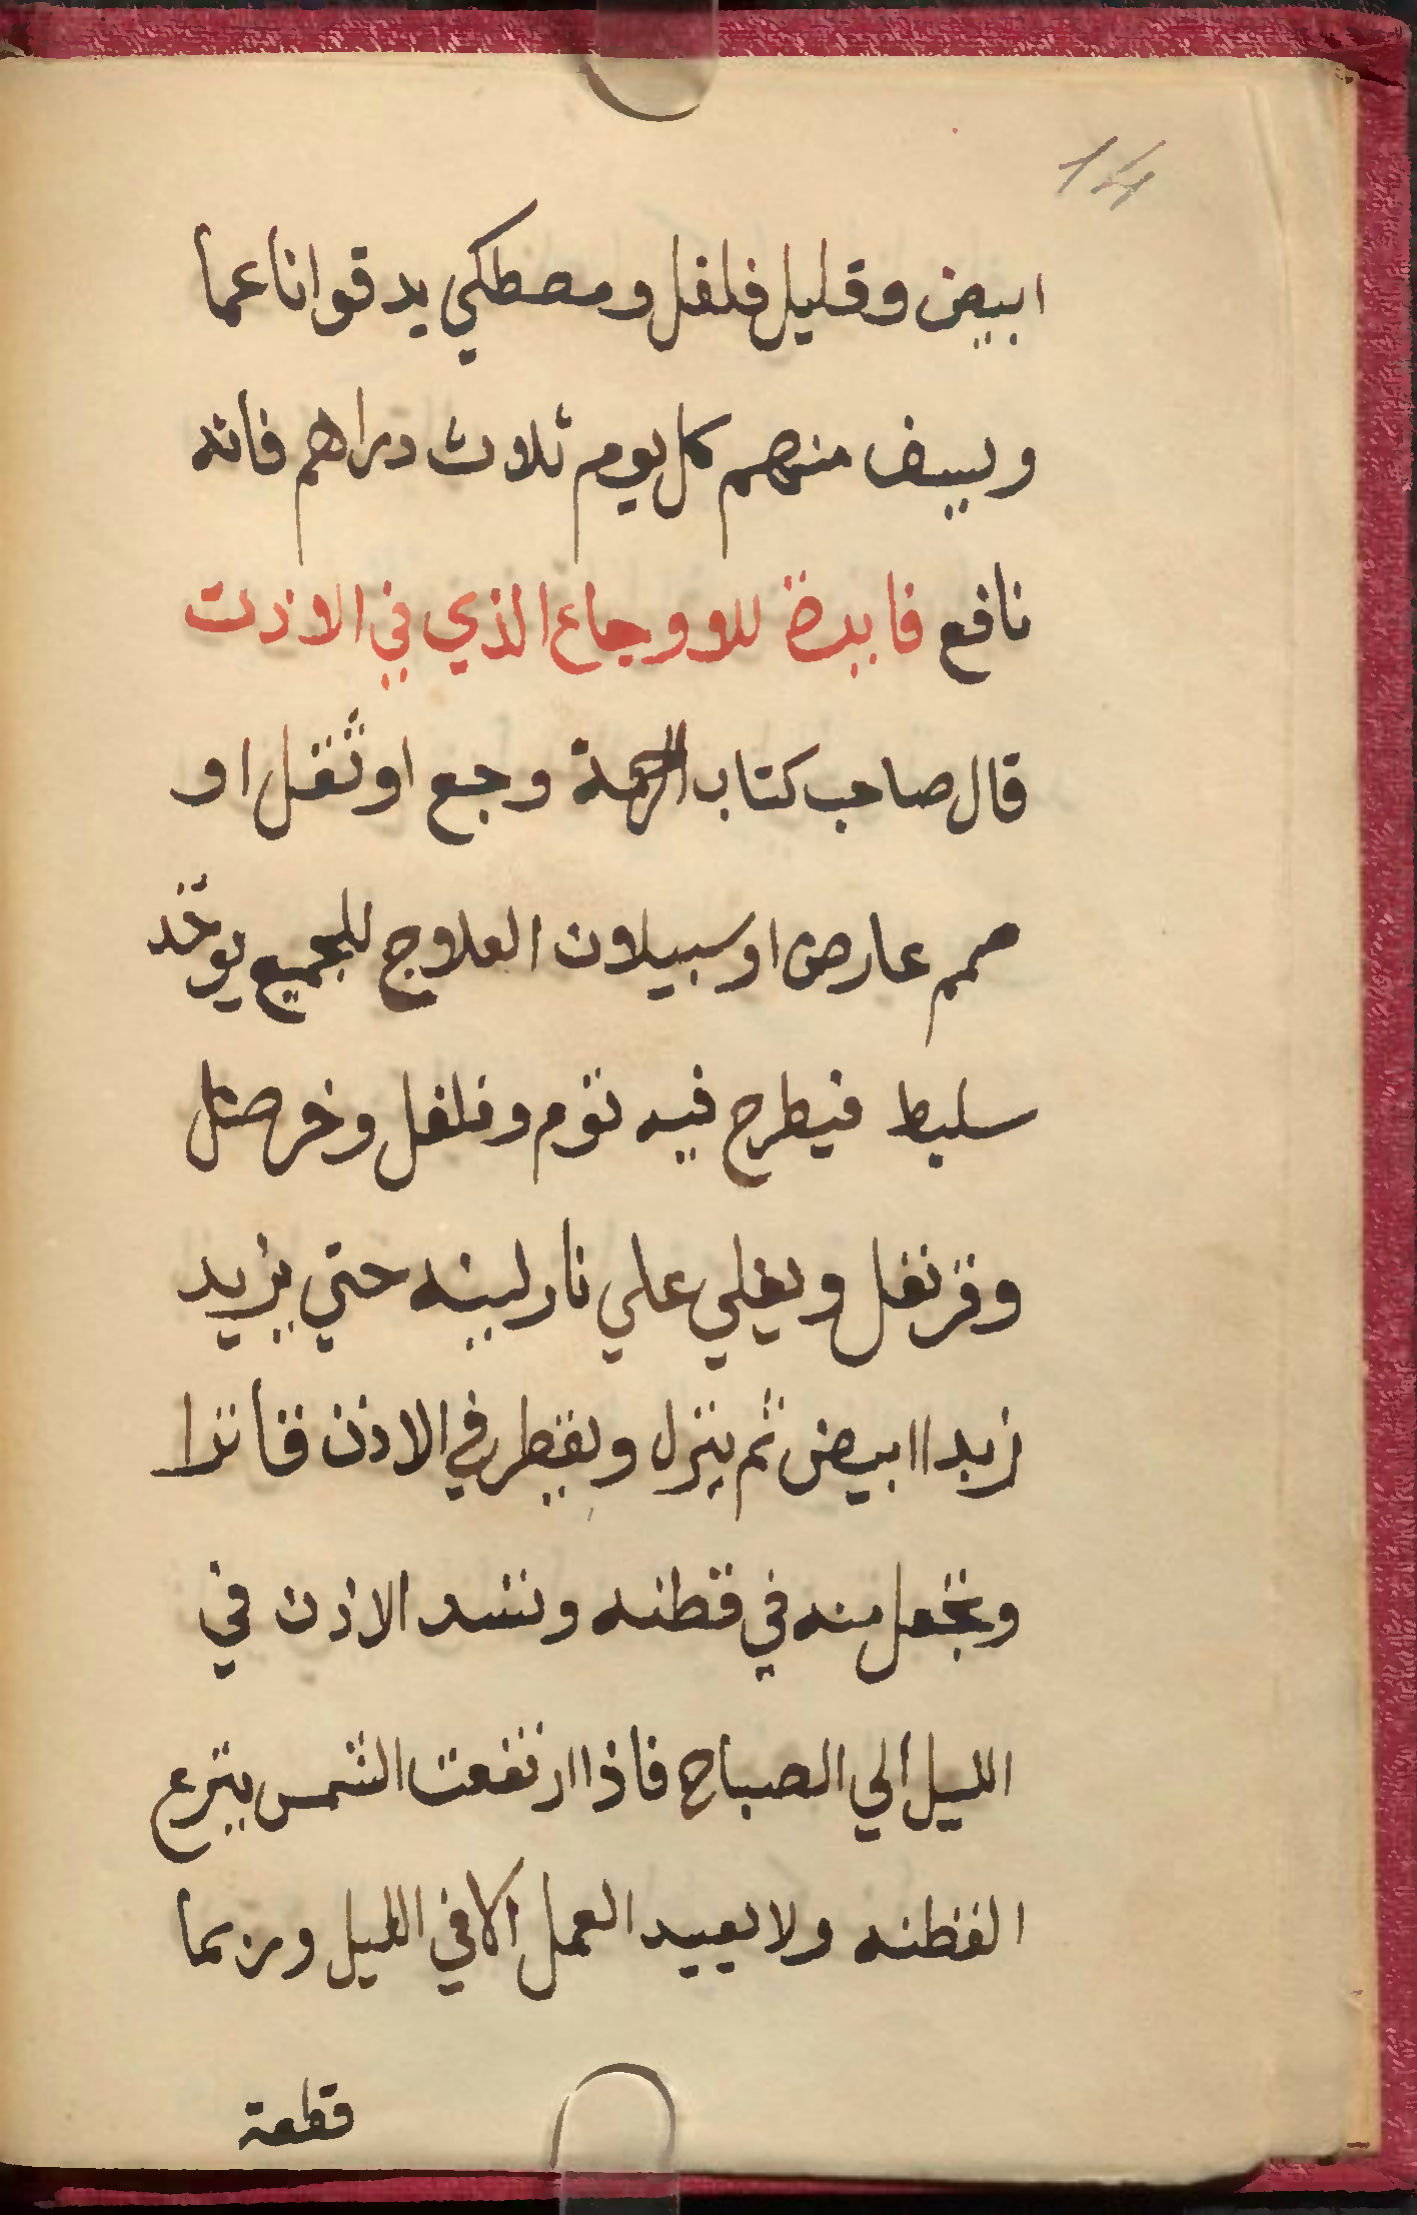 14
ابيض وقليل فلفل ومصطكي يدقوا ناعما
ويسف منهم كل يوم ثلاث دراهم فانه
نافع فايدة للاوجاع الذي في الاذن
قال صاحب كتاب الرحمة وجع او ثقل او
صمم عارض او سيلان العلاج للجميع يوخذ
سليط فيطرح فيه ثوم وفلفل وخر صنل
وقرنفل ويغلي علي نار لينه حتي يزيد
زبدا ابيض ثم ينزل ويقطر في الاذن فاترا
ويجعل منه في قطنه وتشد الاذن في
الليل الي الصباح فاذا ارتفعت الشمس ينزع
القطنه ولا يعيد العمل الا في الليل وربما
قطعة